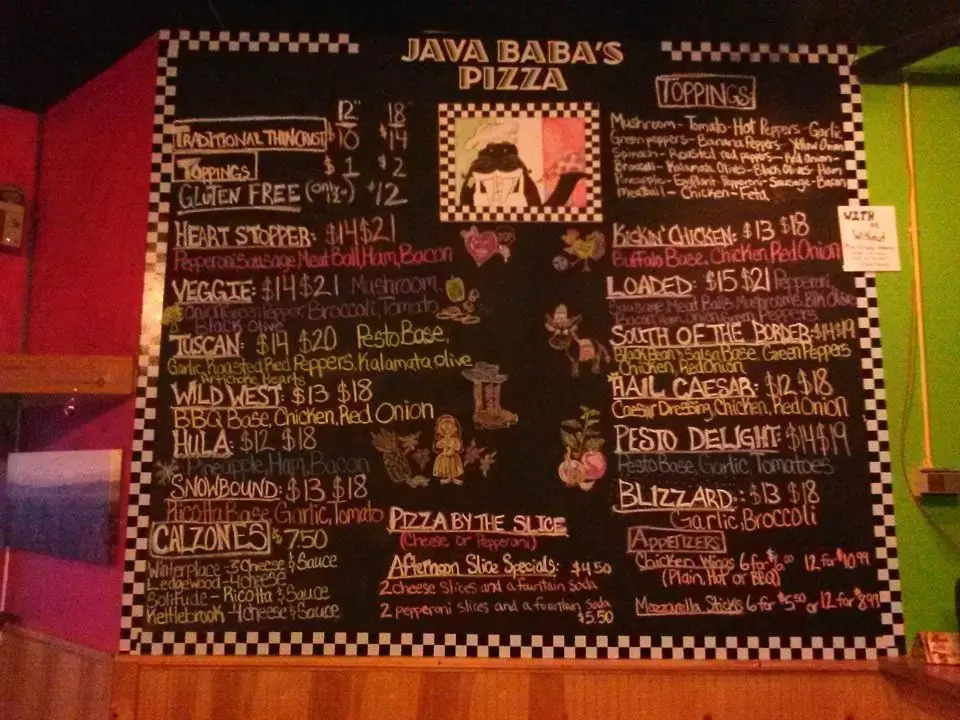 JAVA BABA'S
PIZZA
12" 18"
TRADITIONAL THIN CRUST $10 $14
TOPPINGS $1 $2
GLUTEN FREE (only) $12
HEART STOPPER: $14 $21
Pepperoni, Sausage, Meat Ball, Ham, Bacon
VEGGIE: $14 $21 Mushroom
Onion, Green Pepper, Broccoli, Tomato,
Black Olive
TUSCAN: $14 $20 Pesto Base,
Garlic, Roasted Red Peppers, Kalamata olive
Artichoke Hearts
WILD WEST: $13 $18
BBQ Base, Chicken, Red Onion
HULA: $12 $18
Pineapple, Ham, Bacon
SNOWBOUND: $13 $18
Ricotta Base, Garlic, Tomato
CALZONES $7.50
Winterplace - 3 Cheese & Sauce
Ledgewood - 4 cheese
Solitude - Ricotta & Sauce
Kettlebrook - 4 Cheese & Sauce
PIZZA BY THE SLICE
(Cheese or Pepperoni)
Afternoon Slice Specials: $4.50
2 cheese slices and a fountain soda
2 pepperoni slices and a fountain soda
$5.50
TOPPINGS
Mushroom - Tomato - Hot Peppers - Garlic
Green peppers - Banana Peppers - Yellow Onion
Spinach - Roasted red peppers - Red onion -
Broccoli - Kalamata Olives - Black Olives - Ham
Pineapple - Eggplant - Pepperoni - Sausage - Bacon
Meatball - Chicken - Feta
KICKIN' CHICKEN: $13 $18
Buffalo Base, Chicken, Red Onion
LOADED: $15 $21 Pepperoni
Sausage, Meat Balls, Mushrooms, Blk Olive
Onion, Green Peppers
SOUTH OF THE BORDER $14 $19
Black Bean & Salsa Base, Green Peppers
Chicken, Red Onion
HAIL CAESAR: $12 $18
Caesar Dressing, Chicken, Red Onion
PESTO DELIGHT: $14 $19
Pesto Base, Garlic, Tomatoes
BLIZZARD: $13 $18
Garlic, Broccoli
APPETIZERS
Chicken Wings 6 for $6.00 12 for $10.99
(Plain, Hot or BBQ)
Mozzarella Sticks 6 for $5.50 or 12 for $8.99
WITH
or
Without